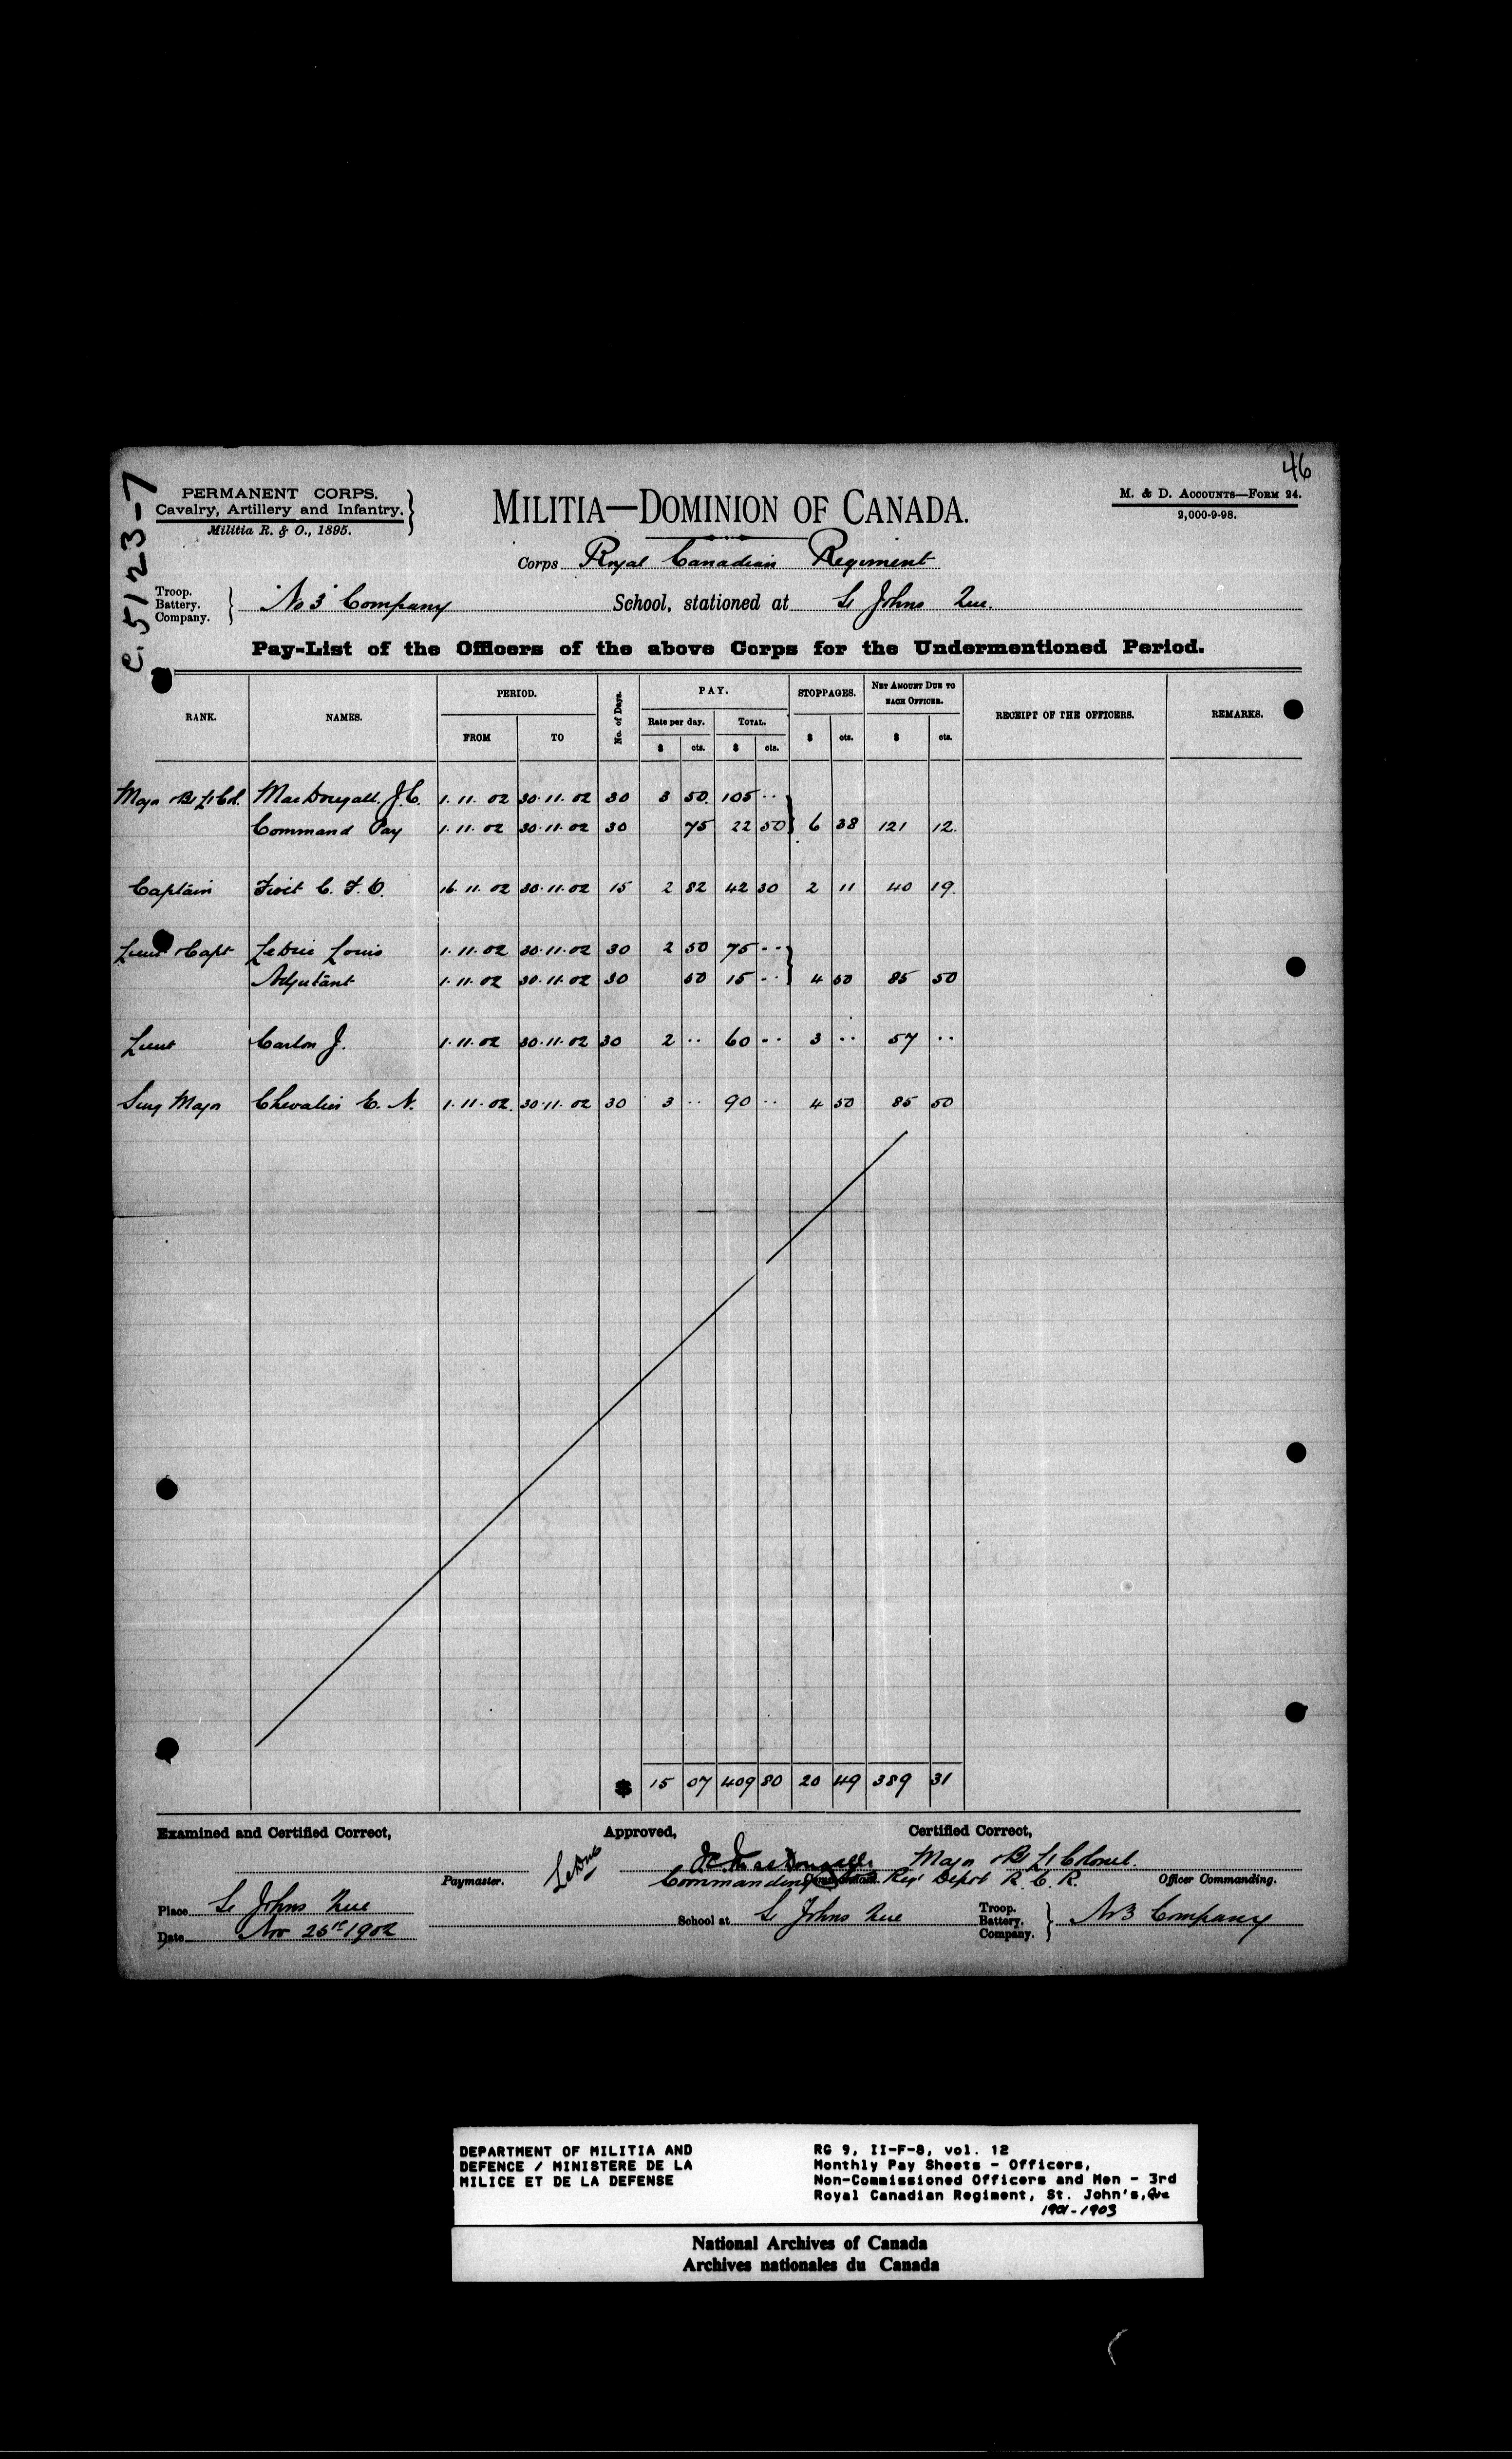 46
C. 5123-7
PERMANENT CORPS.
Cavalry, Artillery and Infantry.
Militia R. & O., 1895.
MILITIA—DOMINION OF CANADA.
M. & D. ACCOUNTS—FORM 24.
2,000-9-98.
Corps Royal Canadian Regiment
Troop. Battery. Company. } No 3 Company School, stationed at St Johns Que.
Pay-List of the Officers of the above Corps for the Undermentioned Period.
RANK. NAMES. PERIOD. No. of Days. PAY. STOPPAGES. NET AMOUNT DUE TO EACH OFFICER. RECEIPT OF THE OFFICERS. REMARKS.
FROM TO Rate per day. TOTAL. $ cts. $ cts.
$ cts. $ cts.
Major Bt Lt Col. MacDougall. J.C. 1.11.02 30.11.02 30 3 50. 105 ..
Command Pay 1.11.02 30.11.02 30 75 22 50 } 6 38 121 12.
Captain C. F. O. 16.11.02 30.11.02 15 2 82 42 30 2 11 40 19.
Lieut & Capt LeDuc Louis 1.11.02 30.11.02 30 2 50 75 ..
Adjutant 1.11.02 30.11.02 30 50 15 .. } 4 50 85 50
Lieut Carlon J. 1.11.02 30.11.02 30 2 .. 60 .. 3 .. 57 ..
Surg Major Chevalier E. N. 1.11.02. 30.11.02 30 3 .. 90 .. 4 50 85 50
$ 15 07 409 80 20 49 389 31
Examined and Certified Correct, Approved, Certified Correct,
LeDuc J C MacDougall Major Bt Lt Colonel.
Paymaster. Commanding Regl Depot R. C. R. Officer Commanding.
Place St Johns Que School at St Johns Que Troop. Battery. Company. } No 3 Company
Date Nov 1902
DEPARTMENT OF MILITIA AND
DEFENCE / MINISTERE DE LA
MILICE ET DE LA DEFENSE
RG 9, II-F-8, vol. 12
Monthly Pay Sheets - Officers,
Non-Commissioned Officers and Men - 3rd
Royal Canadian Regiment, St. John's, Que
1901-1903
National Archives of Canada
Archives nationales du Canada